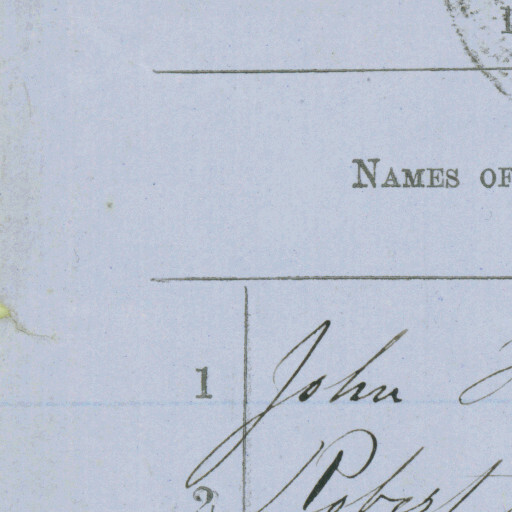 NAMES OF
1 John
2 Robert